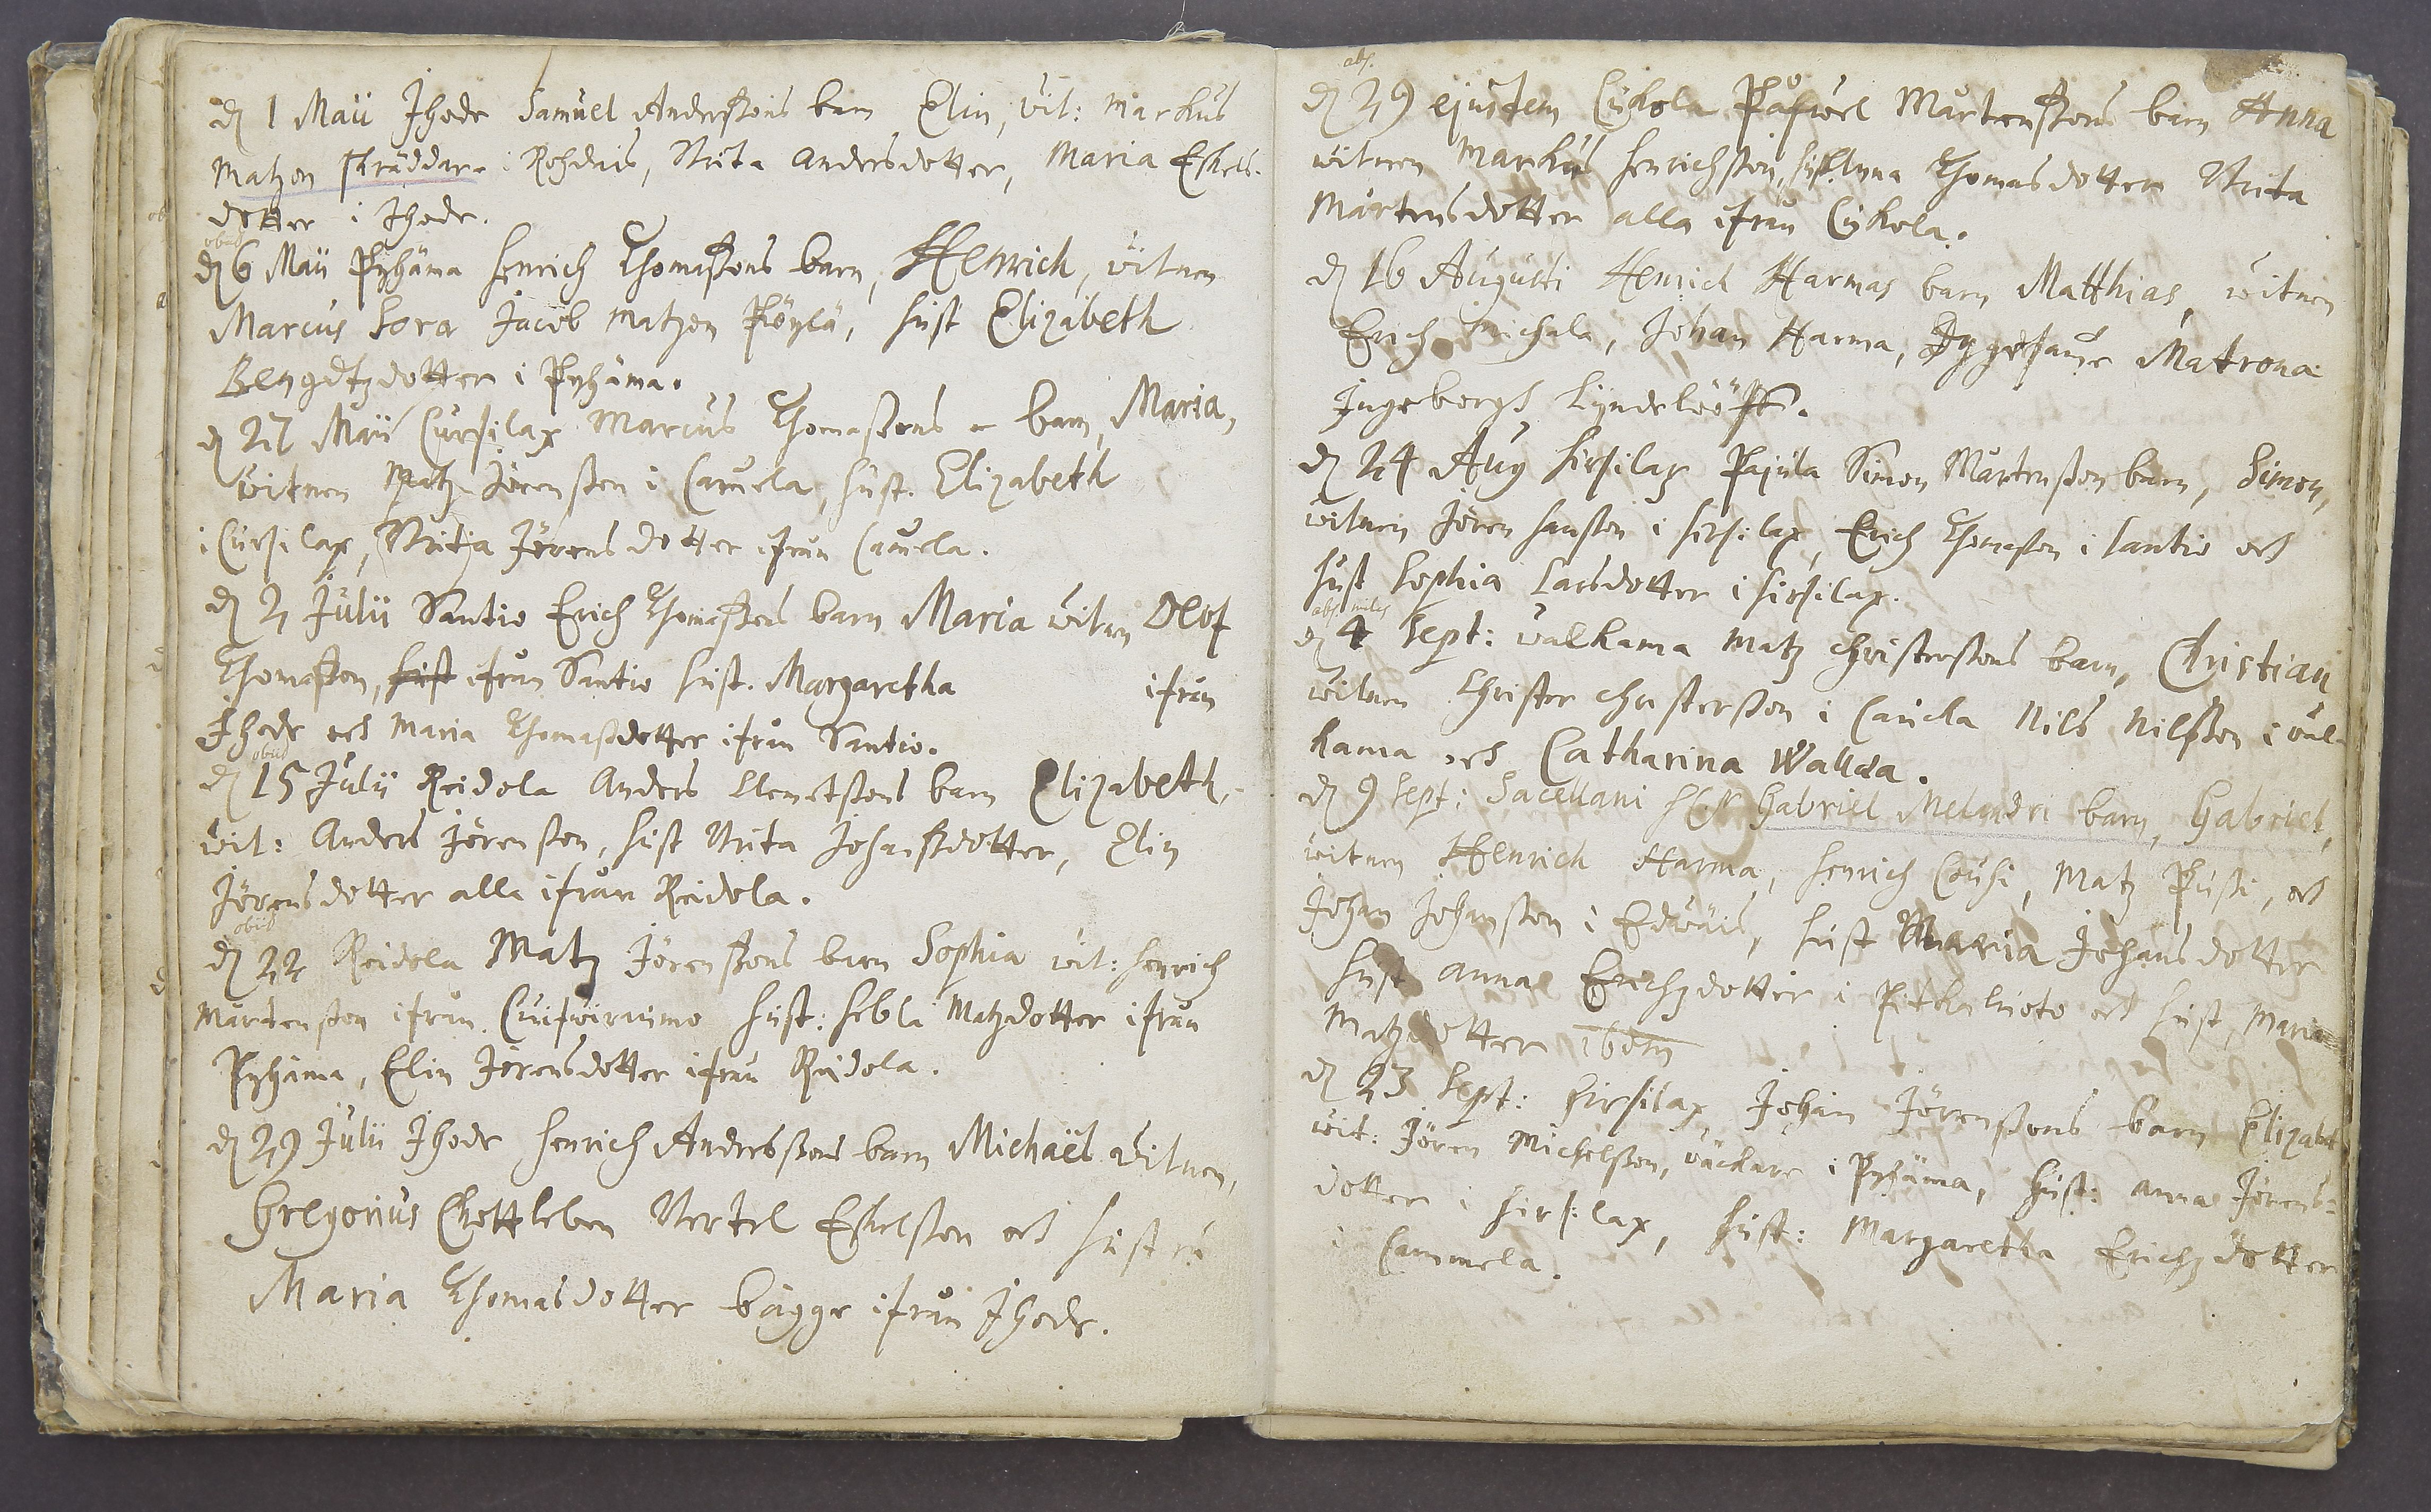 d 1 Maii Ihode Samuel Anderssons barn Elin, wit: Markus
Matzon skräddare i Rohdais, Brita Andersdotter, Maria Eskels-
dotter i Ihode.
obiit
d 6 Maii Pyhäma Henrich Thomassons barn, Henrich, witnen
Marcus Sora Jacob Matzon Pöylä, hust Elizabeth
Bengdtzdotter i Pyhäma.
d 27 Maii Cursilax Marcus Thomassons barn, Maria,
witnen Matz Jörensson i Caruela, hust. Elizabeth
i Cursilax, Brita Jörensdotter ifrån Caruela.
d 2 Julii Santio Erich Thomassons barn Maria witnen Olof
Thomasson, hust ifrån Santio hust. Margaretha ifrån
Ihode och Maria Thomassdotter ifrån Santio.
obiit
d 15 Julii Reidola Anders Clemetssons barn Elizabeth,
wit: Anders Jörensson, hust Brita Johansdotter, Elin
Jörensdotter alla ifrån Reidola.
obiit
d 22 Reidola Matz Jörenssons barn Sophia wit: Henrich
Mårtensson ifrån hust: Sebla Matzdotter ifrån
Pyhäma, Elin Jörensdotter ifrån Reidola.
d 29 Julii Ihode Henrich Anderssons barn Michaël witnen,
Gregorius Gottleben Bertel Eskelsson och hustru
Maria Thomasdotter bägge ifrån Ihode.
ab.
d 29 ejusdem Cykola Påfwel Mårtenssons barn Anna
witnen Markus Henrichsson, hust. Anna Thomasdotter Brita
Mårtensdotter alla ifrån Cykola.
d 16 Augusti Henrich Harmas barn Matthias, witnen
Erich Michala, Johan Harma, Dygdesamme Matrona
Ingeborgh Lyndelööff.
d 24 Aug Hirsilax Pajula Simon Mårtensson barn, Simon,
witnen Jören Hansson i Hirsilax, Erich Thomasson i Santio och
hust Sophia Larsdotter i Hirsilax.
abs. miles
d 4 Sept: walkama Matz Christerssons barn, Christian
witnen Christer Christersson i Caucla Nils Nilsson i wal-
kama och Catharina Wallda.
d 9 Sept: Sacellani H. Gabriel Melandri barn, Gabriel,
witnen Henrich Harma, Henrich Cousi, Matz Pussi, och
Johan Johansson i Edwäis, hust Maria Johansdotter
hust Anna Erichzdotter i Pitkaluoto och hust Maria
Matzdotter ibdm
d 23 Sept: Hirsilax, Johan Jörenssons barn Elizabet
wit: Jören Michelsson, wäckare i Pyhäma, hust: Anna Jörens-
dotter i Hirsilax, hust: Margaretha Erichzdotter
i Cammela.